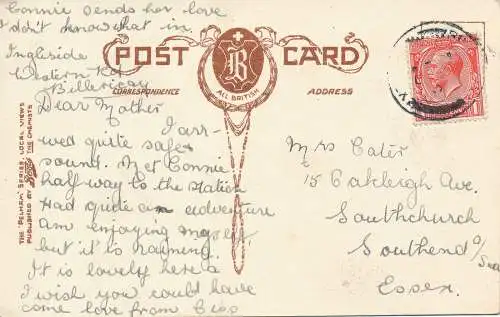 Connie sends her love
I don't know what in.
Ingleside
Western Rd
Billericay
Dear Mother
I arr-
ived quite safe
sound. Met Connie
half way to the station
Had quite an adventure
am enjoying myself
but it is raining.
It is lovely here &
I wish you could have
come love from Ciss
POST CARD
CORRESPONDENCE
ADDRESS
B
ALL BRITISH
THE "PELHAM" SERIES. LOCAL VIEWS
PUBLISHED BY Boots THE CHEMISTS
Mrs Cater
15 Oakleigh Ave.
Southchurch
Southend o/Sea
Essex.